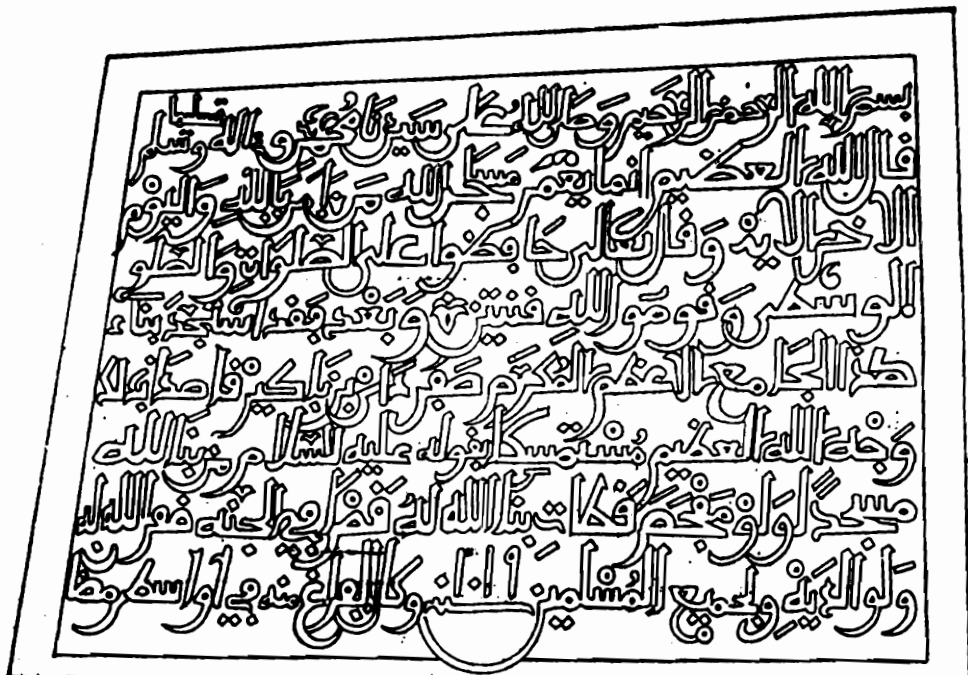 بسم الله الرحمن الرحيم وصلى الله على سيدنا محمد وءاله وسلم تسليما
قال الله العظيم انما يعمر مسجد الله من ءامن بالله واليوم
الاخر الاية وقال تعالى حافظوا على الصلوات والصلوة
الوسطى وقوموا لله قنتين وبعد فقد اسس بناء
هذا الجامع المعظم المكرم صفر بن قاصدا به
وجه الله العظيم مستمسكا بقوله عليه السلام من بنا لله
مسجدا ولو مفحص قطاة بنا الله له قصرا في الجنة غفر الله له
ولوالديه ولجميع المسلمين سنة ١٠١٩ وكان الفراغ منه في اواسط رمضا